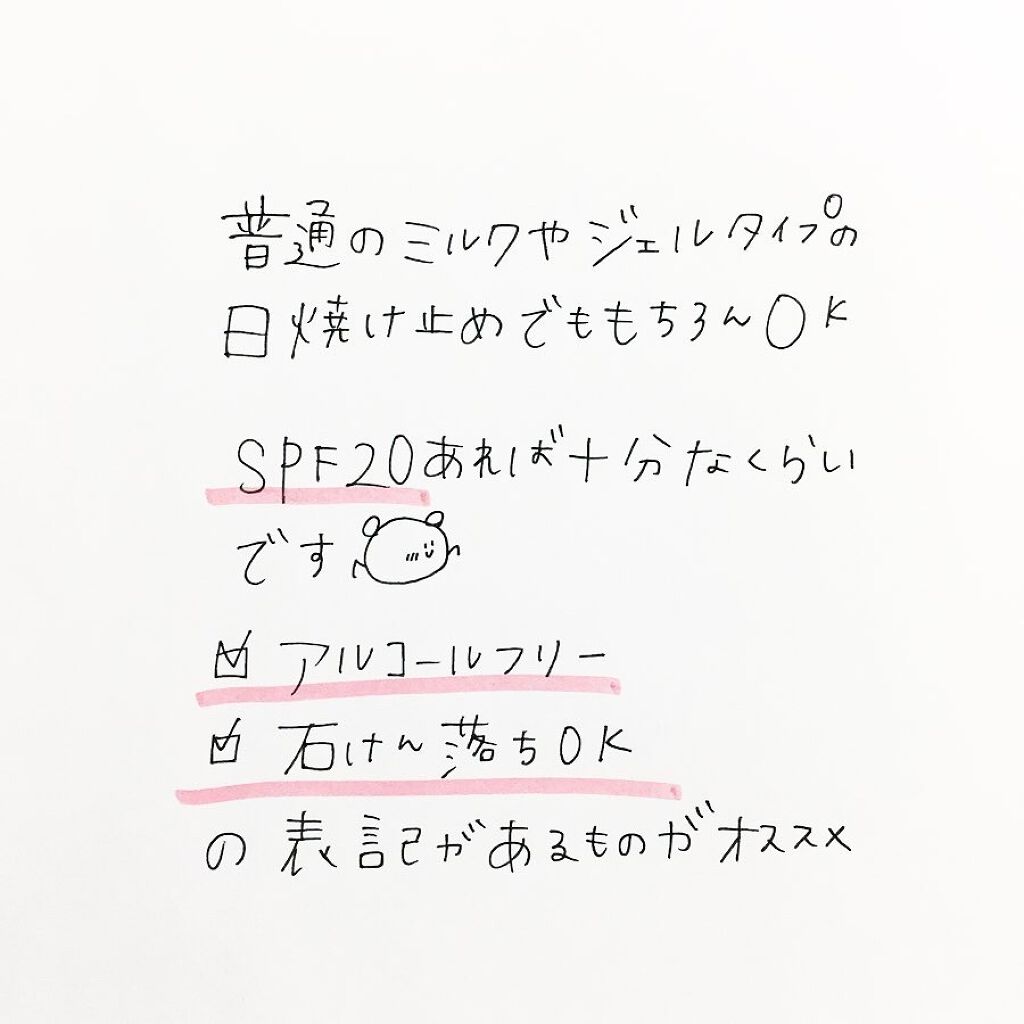 普通のミルクやジェルタイプの
日焼け止めでももちろんOK
SPF20あれば十分なくらい
です
☑ アルコールフリー
☑ 石けん落ちOK
の表記があるものがオススメ